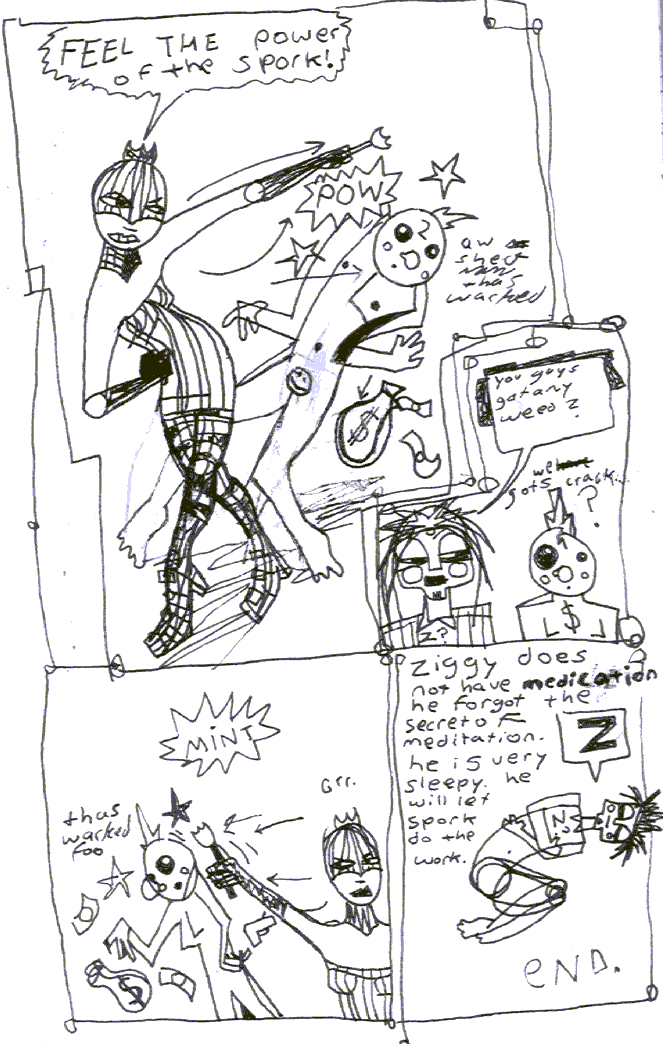 FEEL THE power
of the spork!
POW
aw
shet
thas
wacked
$
you guys
gat any
weed Z?
we
got 5 crack...
?
Z?
$
MINT
Grr.
thas
wacked
foo
$
Ziggy does
not have medication
he forgot the
secret of
meditation.
he is very
sleepy. he
will let
spork
do the
work.
Z
Z?
END.